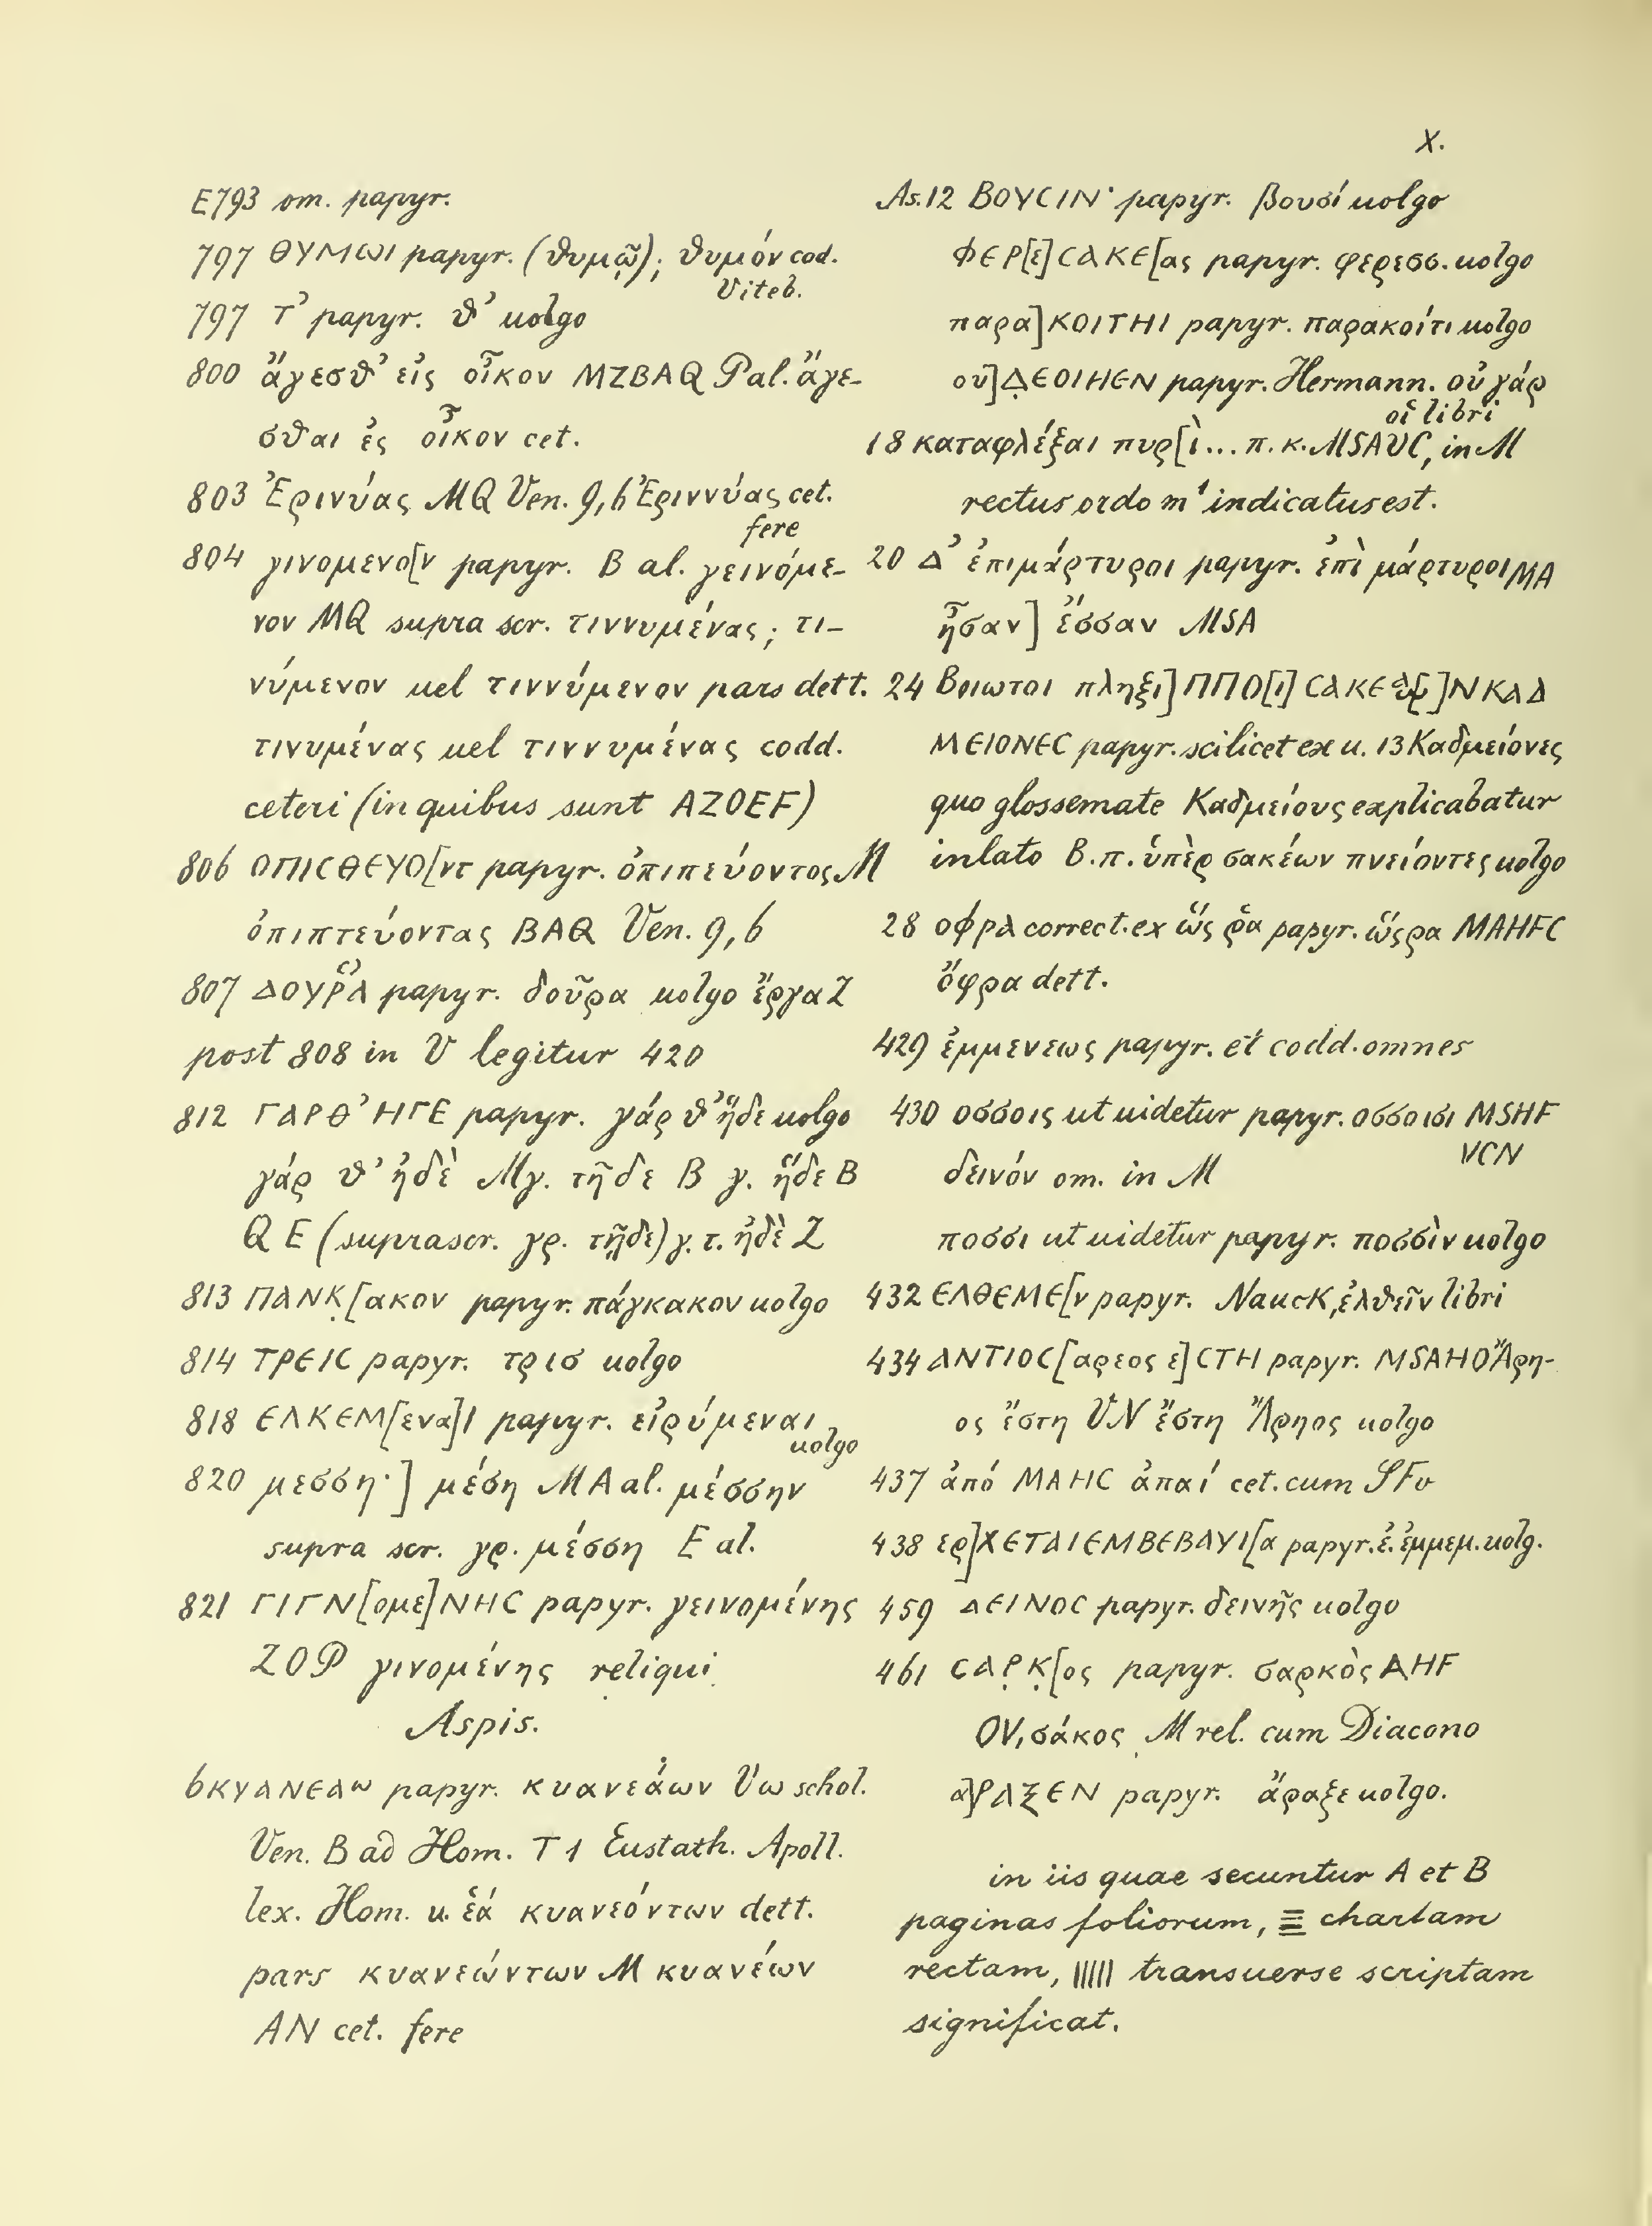 X.
E793 om. papyr.
797 ΘΥΜωΙ papyr. (θυμῷ); θυμόν cod.
Viteb.
797 τ’ papyr. θ’ uolgo
800 ἄγεσθ’ εἰς οἶκον MZBAQ Pal. ἄγε-
σθαι ἐς οἶκον cet.
803 Ἐρινύας MQ Ven. 9,6 Ἐριννύας cet.
fere
804 γινομενο[ν papyr. B al. γεινόμε-
νον MQ supra scr. τιννυμένας; τι-
νύμενον uel τιννύμενον pars dett.
τινυμένας uel τιννυμένας codd.
ceteri (in quibus sunt AZOEF)
806 ΟΠΙϹΘΕΥΟ[ντ papyr. ὀπιπεύοντος M
ὀπιπτεύοντας BAQ Ven. 9,6
807 ΔΟΥΡΑ papyr. δοῦρα uolgo ἔργα Z
post 808 in V legitur 420
812 ΓΑΡΘ’ΗΓΕ papyr. γάρ θ’ ἥδε uolgo
γάρ θ’ ἠδὲ M γ. τῆδε B γ. ἥδε B
QE (suprascr. γρ. τῇδε) γ. τ. ἠδὲ Z
813 ΠΑΝΚ̣[ακον papyr. πάγκακον uolgo
814 ΤΡΕΙϹ papyr. τρισ uolgo
818 ΕΛΚΕΜ[ενα]Ι papyr. εἰρύμεναι
uolgo
820 μεσση·] μέση MA al. μέσσην
supra scr. γρ. μέσση E al.
821 ΓΙΓΝ[ομε]ΝΗϹ papyr. γεινομένης
ZOP γινομένης reliqui
Aspis.
6 ΚΥΑΝΕΑω papyr. κυανεάων Vω schol.
Ven. B ad Hom. T 1 Eustath. Apoll.
lex. Hom. u. ἑά κυανεόντων dett.
pars κυανεώντων M κυανέων
AN cet. fere
As. 12 ΒΟΥϹΙΝ· papyr. βουσί uolgo
ΦΕΡ[ε]ϹΑΚΕ[ας papyr. φερεσσ. uolgo
παρα]ΚΟΙΤΗΙ papyr. παρακοίτι uolgo
ου]Δ̣ΕΟΙΗΕΝ papyr. Hermann. οὐ γάρ
οἱ libri
18 καταφλέξαι πυρ[ὶ... π. κ. MSAVC, in M
rectus ordo m¹ indicatus est.
20 Δ’ ἐπιμάρτυροι papyr. ἐπὶ μάρτυροι MA
ἦσαν] ἔσσαν MSA
24 Βοιωτοι πληξι]ΠΠΟ[ι]ϹΑΚΕ[]ΝΚΑΔ
ΜΕΙΟΝΕϹ papyr. scilicet ex u. 13 Καδμείονες
quo glossemate Καδμείους explicabatur
inlato B. π. ὑπὲρ σακέων πνείοντες uolgo
28 οφρα correct. ex ὥς ῥα papyr. ὥς ρα MAHFC
ὄφρα dett.
429 ἐμμενεως papyr. et codd. omnes
430 οσσοις ut uidetur papyr. οσσοισι MSHF
VCN
δεινόν om. in M
ποσσι ut uidetur papyr. ποσσὶν uolgo
432 ΕΛΘΕΜΕ[ν papyr. Nauck, ἐλθεῖν libri
434 ΑΝΤΙΟϹ[αρεος ε]ϹΤΗ papyr. MSAHO Ἄρη-
ος ἔστη VN ἔστη Ἄρηος uolgo
437 ἀπό MAHC ἀπαί cet. cum SFv
438 ερ]ΧΕΤΑΙΕΜΒΕΒΑΥΙ[α papyr. ἐ. ἐμμεμ. uolg.
459 ΔΕΙΝΟϹ papyr. δεινῆς uolgo
461 ϹΑΡ̣Κ̣[ος papyr. σαρκὸς AHF
OV, σάκος M rel. cum Diacono
α]ΡΑΞΕΝ papyr. ἄραξε uolgo.
in iis quae secuntur A et B
paginas foliorum, ≡ chartam
rectam, ||||| transuerse scriptam
significat.